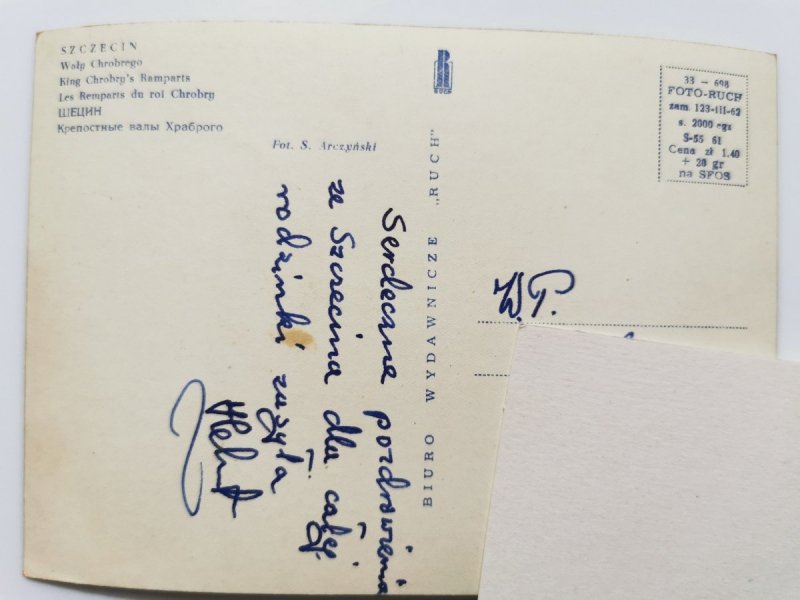 SZCZECIN
Wały Chrobrego
King Chrobry's Ramparts
Les Remparts du roi Chrobry
ЩЕЦИН
Крепостные валы Храброго
Fot. S. Arczyński
RUCH
BIURO WYDAWNICZE „RUCH"
33 - 698
FOTO-RUCH
zam. 123-III-62
s. 2000 egz
S-55 61
Cena zł 1.40
+ 20 gr
na SFOS
Serdeczne pozdrowienia
ze Szczecina dla całej
rodzinki zasyła
W.P.